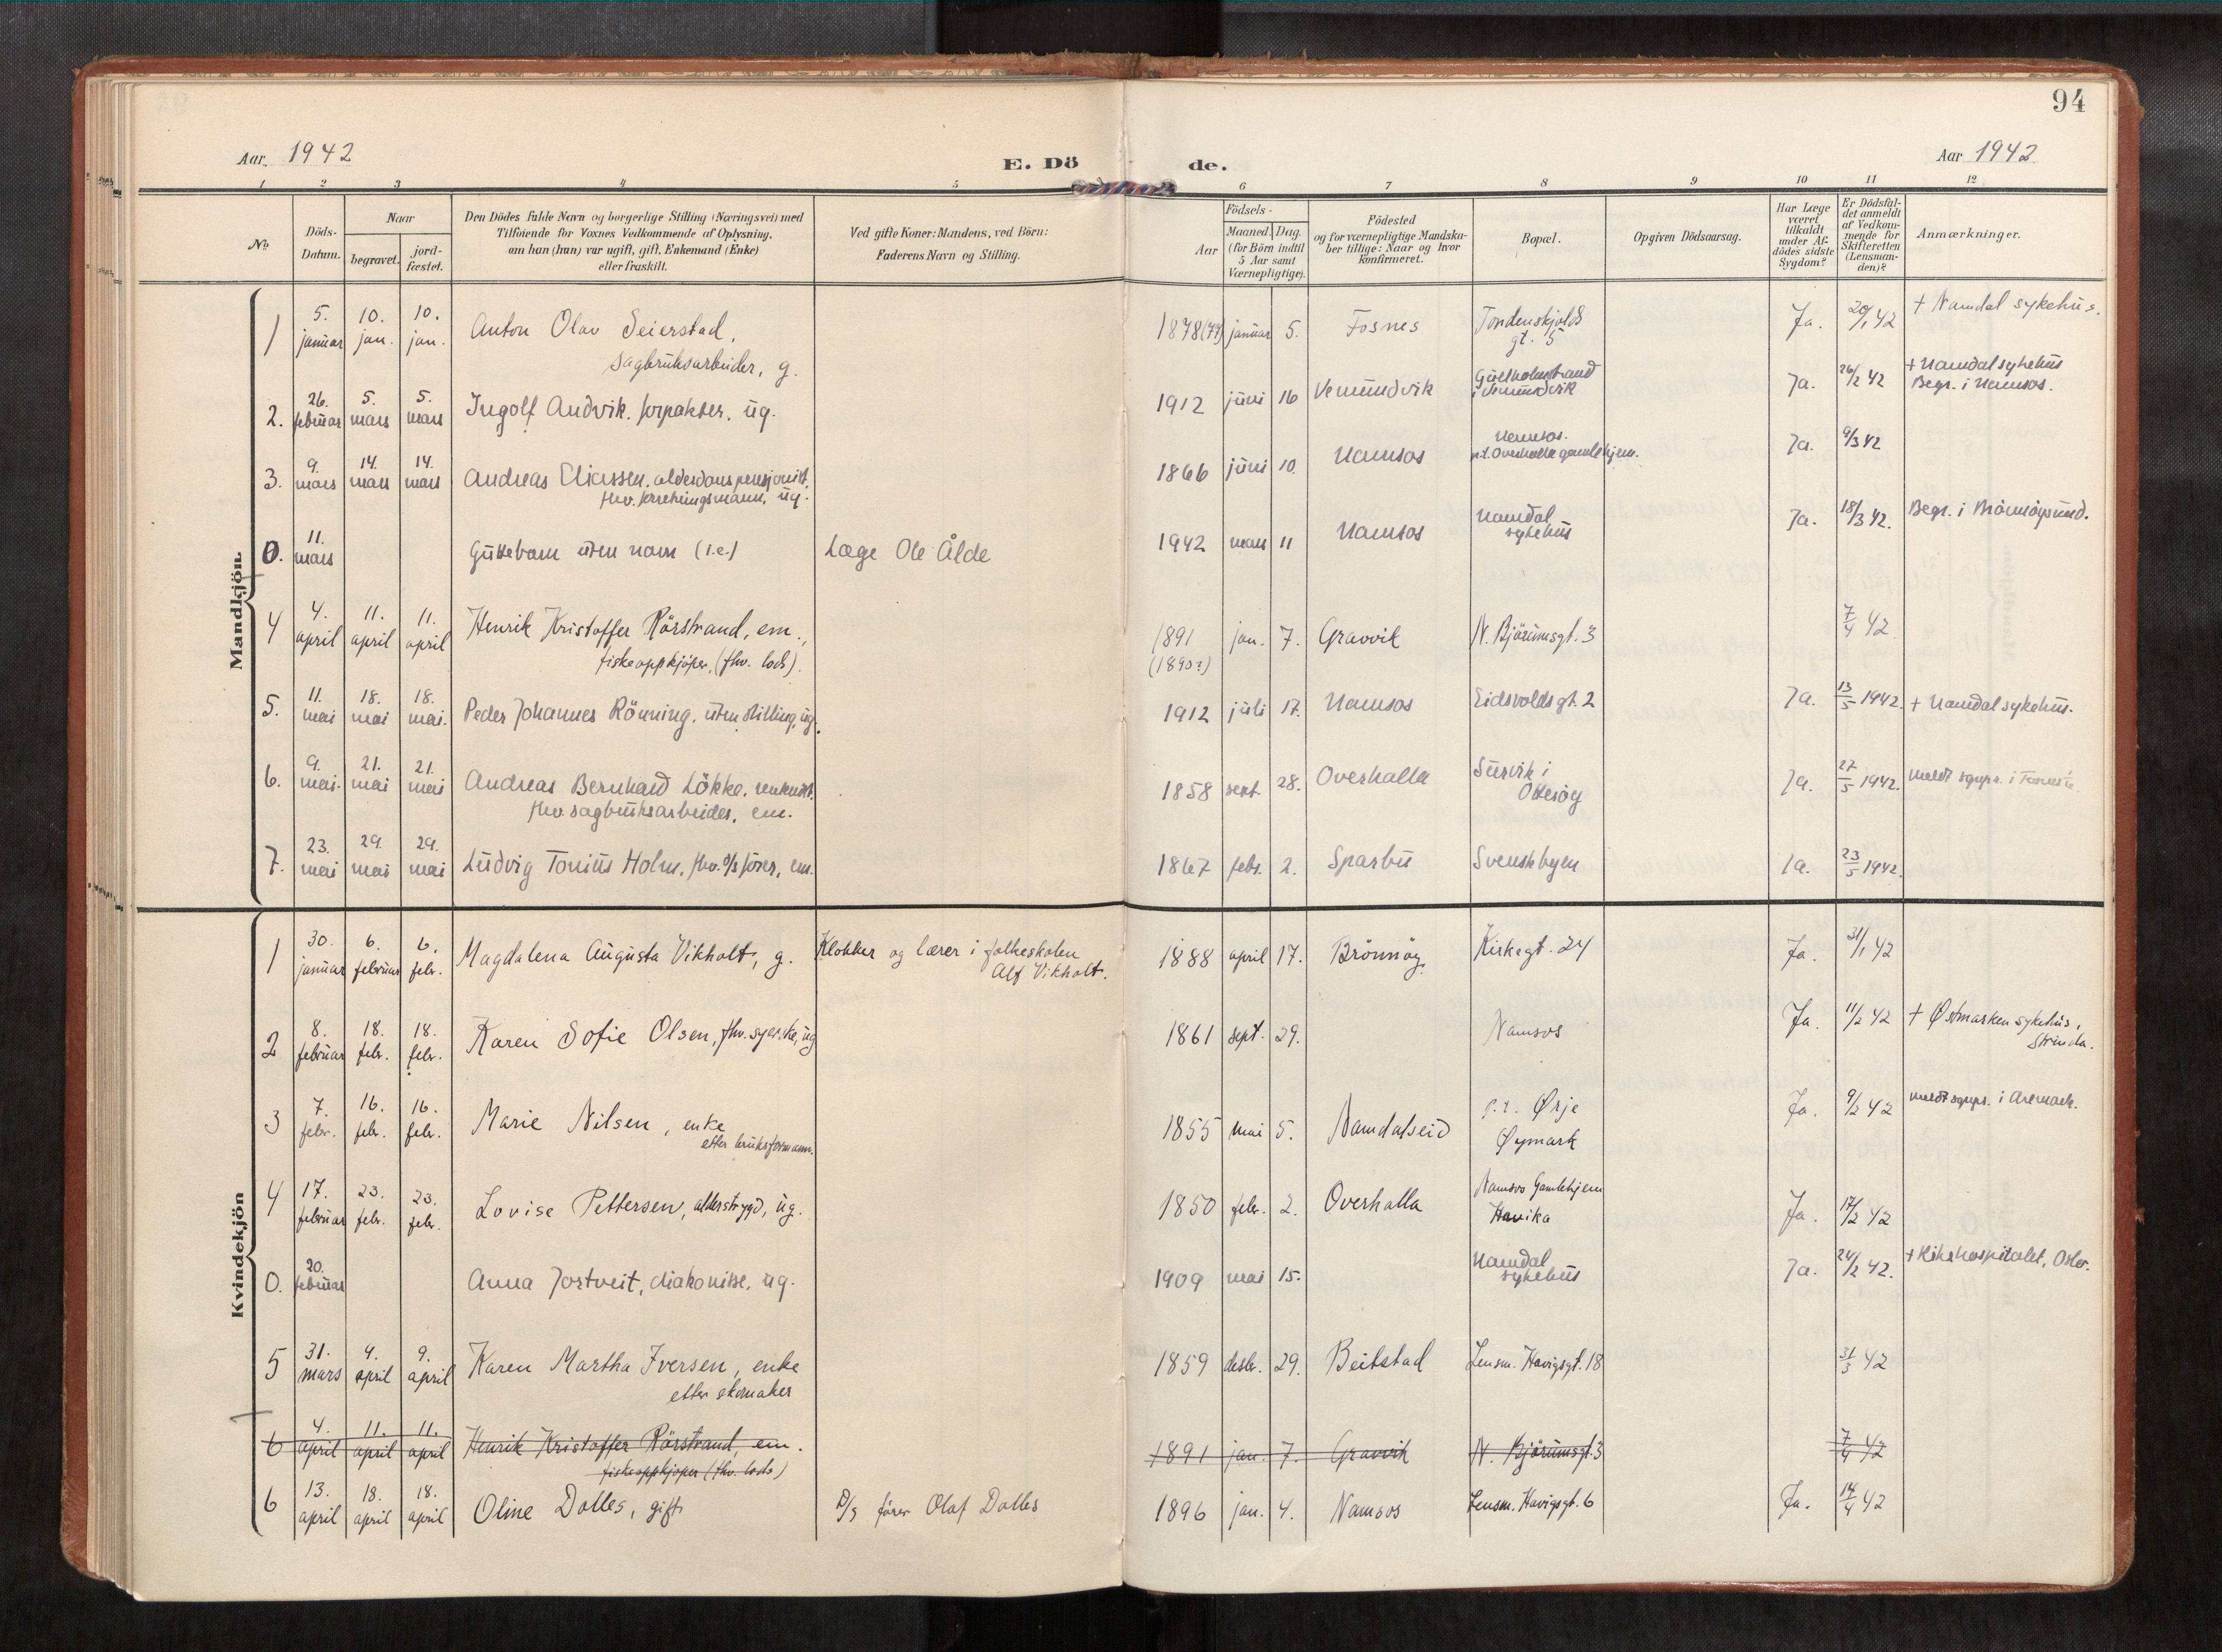 94
Aar 1942
E. Dö de.
Aar 1942
1 2 3 4 5 6 7 8 9 10 11 12
No
Döds-Datum.
Naar
begravet.
jord-fæstet.
Den Dödes fulde Navn og borgerlige Stilling (Næringsvei) med
Tilföiende for Voxnes Vedkommende af Oplysning,
om han (hun) var ugift, gift, Enkemand (Enke)
eller fraskilt.
Ved gifte Koner: Mandens, ved Börn:
Faderens Navn og Stilling.
Födsels-
Aar
Maaned. Dag.
(for Börn indtil
5 Aar samt
Værnepligtige).
Födested
og for værnepligtige Mandska-
ber tillige: Naar og hvor
Konfirmeret.
Bopæl.
Opgiven Dödsaarsag.
Har Læge
været
tilkaldt
under Af-
dödes sidste
Sygdom?
Er Dödsfal-
det anmeldt
af Vedkom-
mende for
Skifteretten
(Lensman-
den)?
Anmærkninger.
Mandkjön.
1 5. januar 10. jan. 10. jan. Anton Olav Seierstad, 1878(77) januar 5. Fosnes Tordenskjolds Ja. 20/1 42 + Namdal sykehus.
sagbruksarbeider, g. gt. 5
2. 26. februar 5. mars 5. mars Ingolf Andvik, forpakter, ug. 1912 juni 16 Vemundvik i Vemundvik Ja. 26/2 42 + Namdal sykehus
Begr. i Namsos.
3. 9. mars 14. mars 14. mars Andreas Eliassen, alderdomspensjonist, 1866 juni 10. Namsos Namsos. Ja. 9/3 42
fhv. forretningsmann, ug. p.t. Overhalla gamlehjem.
0. 11. mars Guttebarn uten navn (i.e.) Læge Ole Ålde 1942 mars 11 Namsos Namdal Ja. 18/3 42. Begr. i Brønnøysund.
sykehus
4 4. april 11. april 11. april Henrik Kristoffer Rörstrand, em., 1891 jan. 7. Gravvik N. Bjørumsgt. 3 7/4 42
fiskeoppkjöper, (fhv. lods). (1890?)
5. 11. mai 18. mai 18. mai. Peder Johannes Rönning, uten stilling, ug. 1912 juli 17. Namsos Eidsvoldsgt. 2 Ja. 13/5 1942. + Namdal sykehus.
6. 9. mai. 21. mai 21. mai Andreas Bernhard Lökke, 1858 sept. 28. Overhalla Survik i Ja. 27/5 1942.
fhv. sagbruksarbeider, em. Otterøy
7. 23. mai 29. mai 29. mai Ludvig Tonius Holm, fhv. D/S fører, em. 1867 febr. 2. Sparbu Svenskbyen Ja. 23/5 1942.
Kvindekjön
1 30. januar 6. februar 6. febr. Magdalena Augusta Vikholt, g. Klokker og lærer i folkeskolen 1888 april 17. Brönnöy Kirkegt. 24 Ja. 31/1 42
Alf Vikholt.
2 8. februar 18. febr. 18. febr. Karen Sofie Olsen, fhv. syerske, ug 1861 sept. 29. Namsos Ja. 11/2 42 + Østmarken sykehus,
Strinda.
3 7. febr. 16. febr. 16. febr. Marie Nilsen, enke 1855 mai 5. Namdalseid p.t. Ørje Ja. 9/2 42 i Aremark.
etter bruksformann. Øymark
4 17. februar 23. febr. 23. febr. Lovise Pettersen, alderstrygd, ug. 1850 febr. 2. Overhalla Namsos Gamlehjem Ja. 17/2 42
Havika
0. 20. februar Anna Jortveit, diakonisse, ug. 1909 mai 15. Namdal Ja. 24/2 42. + Rikshospitalet, Oslo.
sykehus
5 31. mars 9. april 9. april Karen Martha Iversen, enke 1859 desbr. 29. Beitstad Lensm. Havigsgt. 18 31/3 42
etter skomaker
6 4. april 11. april 11. april Henrik Kristoffer Rörstrand, em. 1891 jan. 7. Gravvik N. Bjørumsgt. 3 7/4 42
fiskeoppkjøper (fhv. lods)
6 13. april 18. april 18. april Oline Dolles, gift D/S fører Olaf Dolles 1896 jan. 4. Namsos Lensm. Havigsgt. 6 Ja. 14/4 42